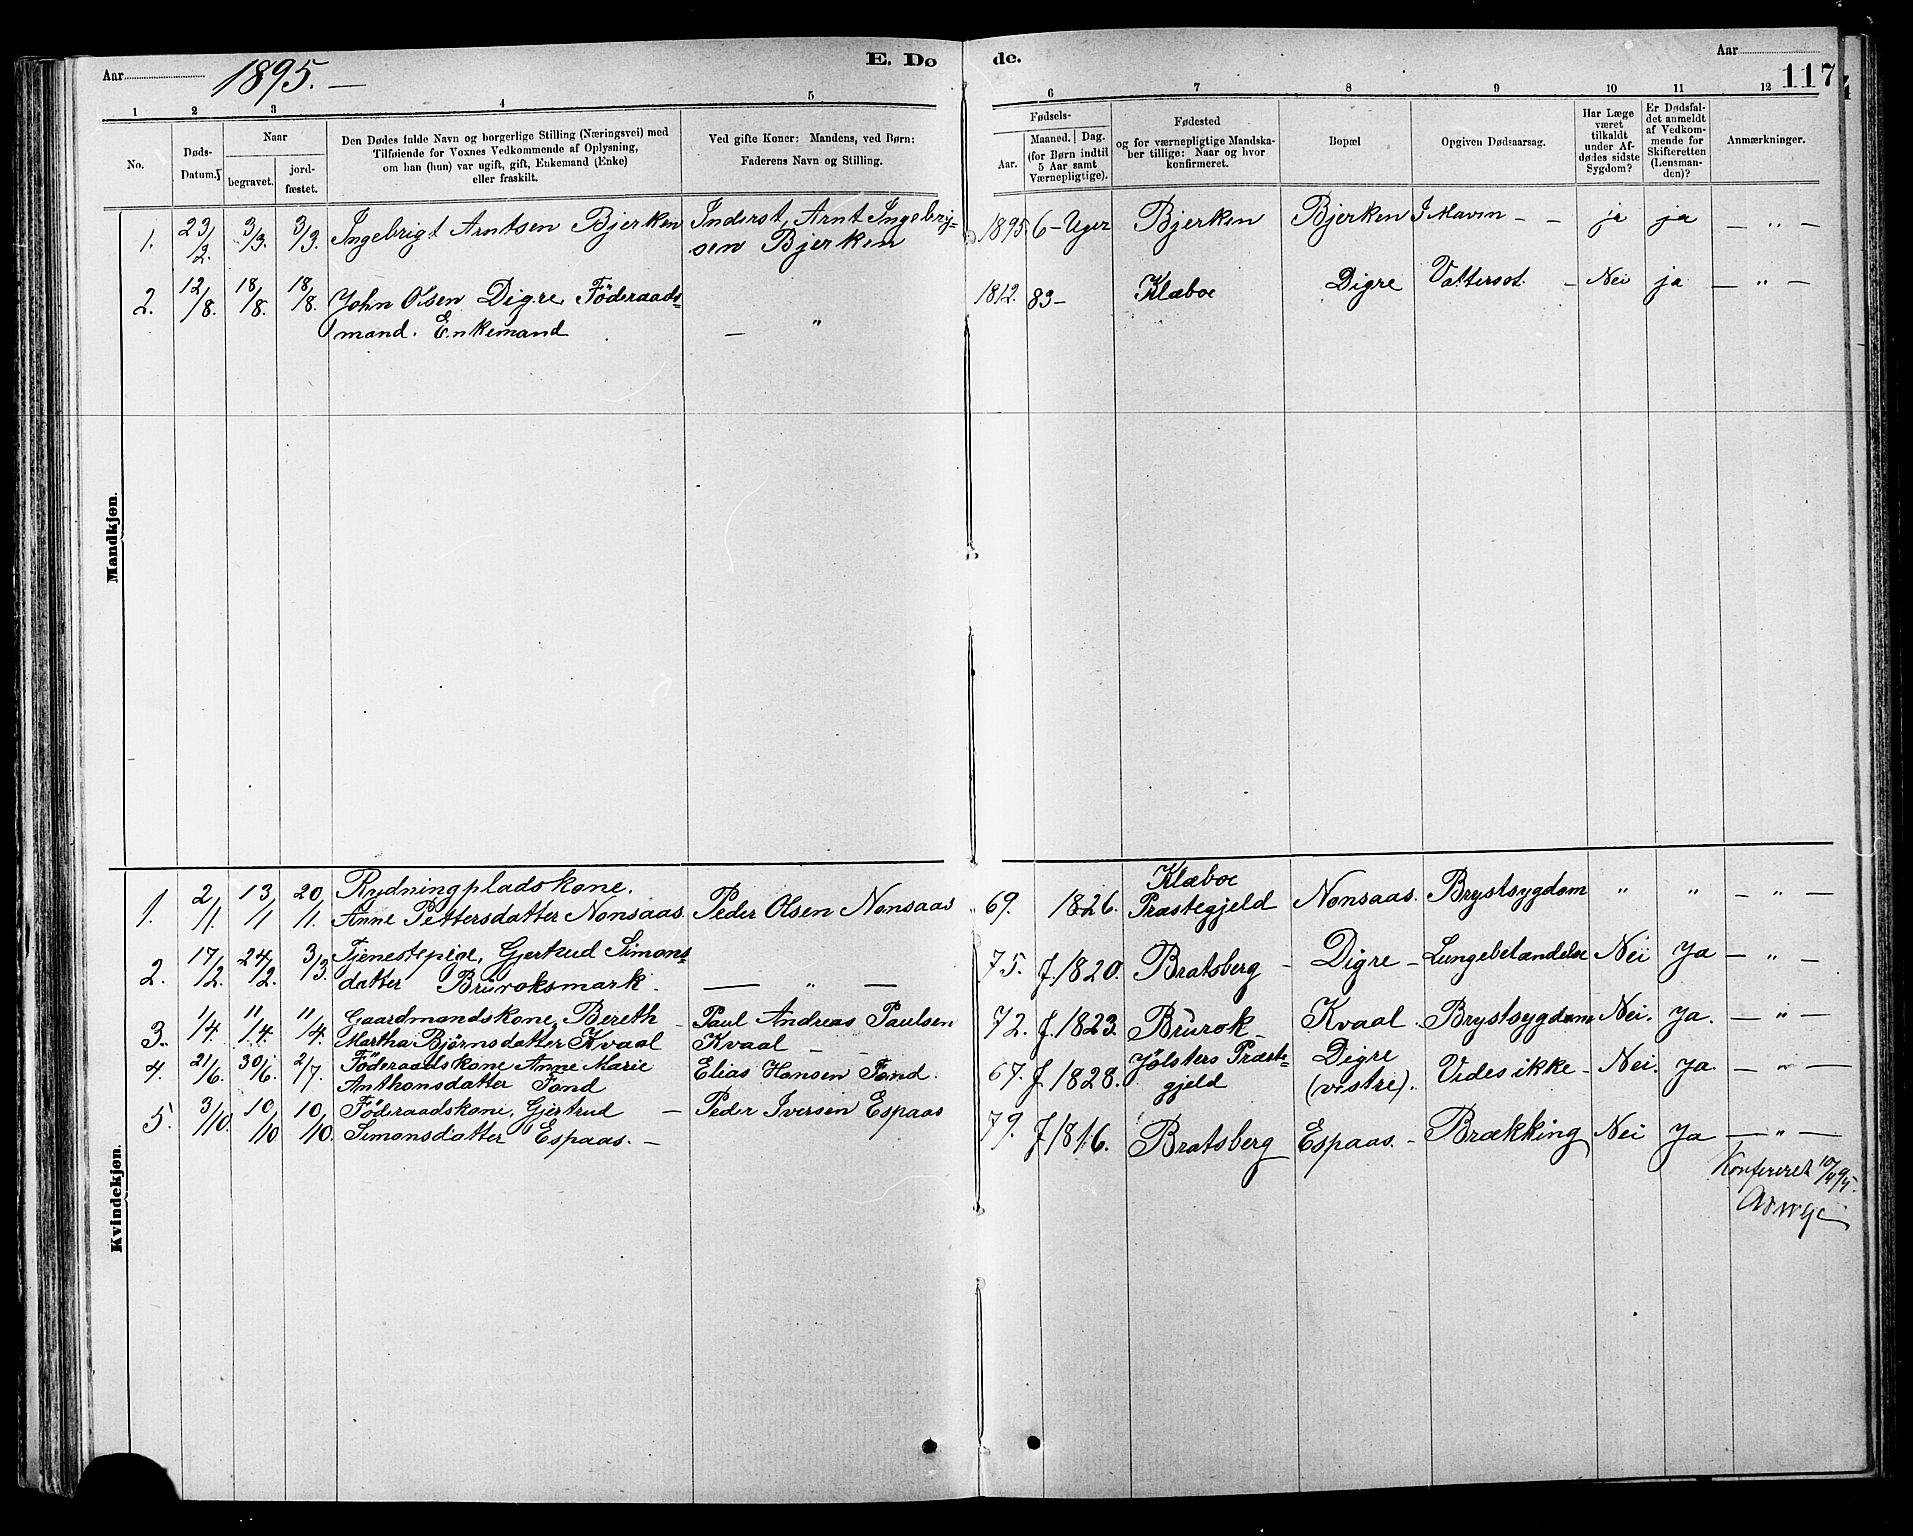 Aar 1895. —
E. Dø
de.
Aar
117
1 2 3 4 5 6 7 8 9 10 11 12
No.
Døds-
Datum.
Naar
begravet.
jord-
fæstet.
Den Dødes fulde Navn og borgerlige Stilling (Næringsvei) med
Tilføiende for Voxnes Vedkommende af Oplysning,
om han (hun) var ugift, gift, Enkemand (Enke)
eller fraskilt.
Ved gifte Koner: Mandens, ved Børn:
Faderens Navn og Stilling.
Fødsels-
Aar.
Maaned. Dag.
(for Børn indtil
5 Aar samt
Værnepligtige).
Fødested
og for værnepligtige Mandska-
ber tillige: Naar og hvor
konfirmeret.
Bopæl
Opgiven Dødsaarsag.
Har Læge
været
tilkaldt
under Af-
dødes sidste
Sygdom?
Er Dødsfal-
det anmeldt
af Vedkom-
mende for
Skifteretten
(Lensman-
den)?
Anmærkninger.
Mandkjøn.
1. 23/2. 3/3. 3/3. Ingebrigt Arntsen Bjerken Inderst, Arnt Ingebrig- 1895 6 - Uger Bjerken Bjerken I Maven - - ja ja — " —
sen Bjerken
2. 12/8. 18/8. 18/8. John Olsen Digre, Föderaads- 1812. 83 - Klæboe Digre Vattersot. - Nei ja — " —
mand. Enkemand — "
Kvindekjøn.
Rydningpladskone. Klæboe
1. 2/1. 13/1 20/1. Anne Pettersdatter Nonsaas. Peder Olsen Nonsaas 69. 1826. Præstegjeld Nonsaas. Brystsygdom " " — " —
2. 17/2. 24/2. 3/3. Tjenestepige, Gjertrud Simons- 75. f. 1820. Bratsberg - Digre - Lungebetændelse Nei Ja — " —
datter Bruroksmark. — " —
3. 1/4. 11/4. 11/4 Gaardmandskone, Bereth - Paul Andreas Paulsen 72. f. 1823. Brurok - Kvaal. Brystsygdom Nei. Ja. — " —
Martha Bjørnsdatter Kvaal Kvaal - -
4. 21/6. 30/6. 2/7. Föderaadskone Anne Marie Elias Hansen Fond. 67. f. 1828. Jølsters Præste- Digre Vides ikke - Nei. Ja. — " —
Anthonsdatter Fond gjeld (vestre).
5. 3/10. 10/10 10/10. Föderaadskone, Gjertrud — Peder Iversen Espaas 79. f. 1816. Bratsberg Espaas. - Brækking Nei Ja — " —
Simonsdatter Espaas. —
Konfereret